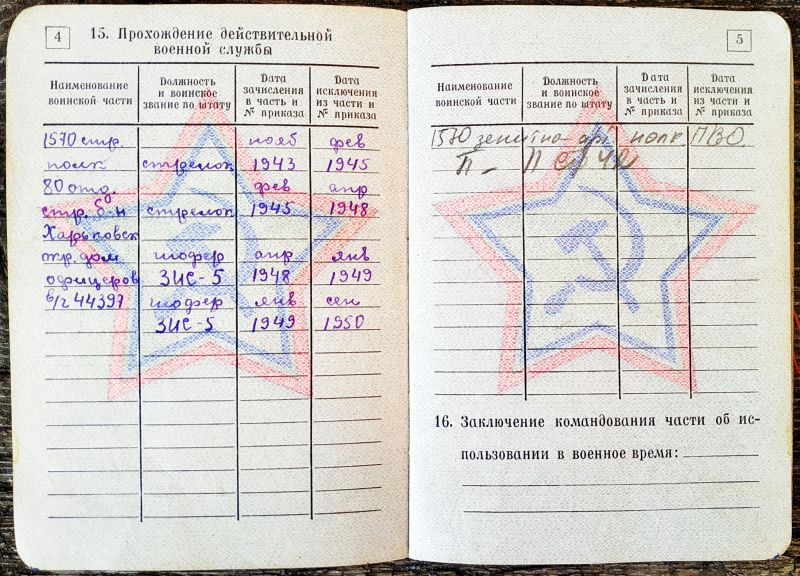 4
15. Прохождение действительной
военной службы
Наименование воинской части
Должность и воинское звание по штату
Дата зачисления в часть и № приказа
Дата исключения из части и № приказа
1570 стр. нояб фев
полк стрелок 1943 1945
80 отд. фев апр
стр. б-н стрелок 1945 1948
Харьковск
окр. дом шофер апр янв
офицеров ЗИС-5 1948 1949
в/ч 44397 шофер янв сен
ЗИС-5 1949 1950
5
Наименование воинской части
Должность и воинское звание по штату
Дата зачисления в часть и № приказа
Дата исключения из части и № приказа
1570 зенитно-арт полк ПВО.
16. Заключение командования части об ис-
пользовании в военное время: